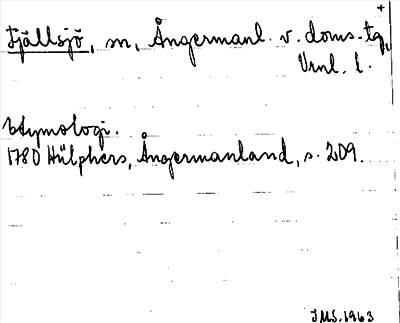 +
Fjällsjö, sn, Ångermanl. v. doms-tg,
Vrnl. l.
Etymologi.
1780 Hülphers, Ångermanland, s. 209.
JMS. 1963